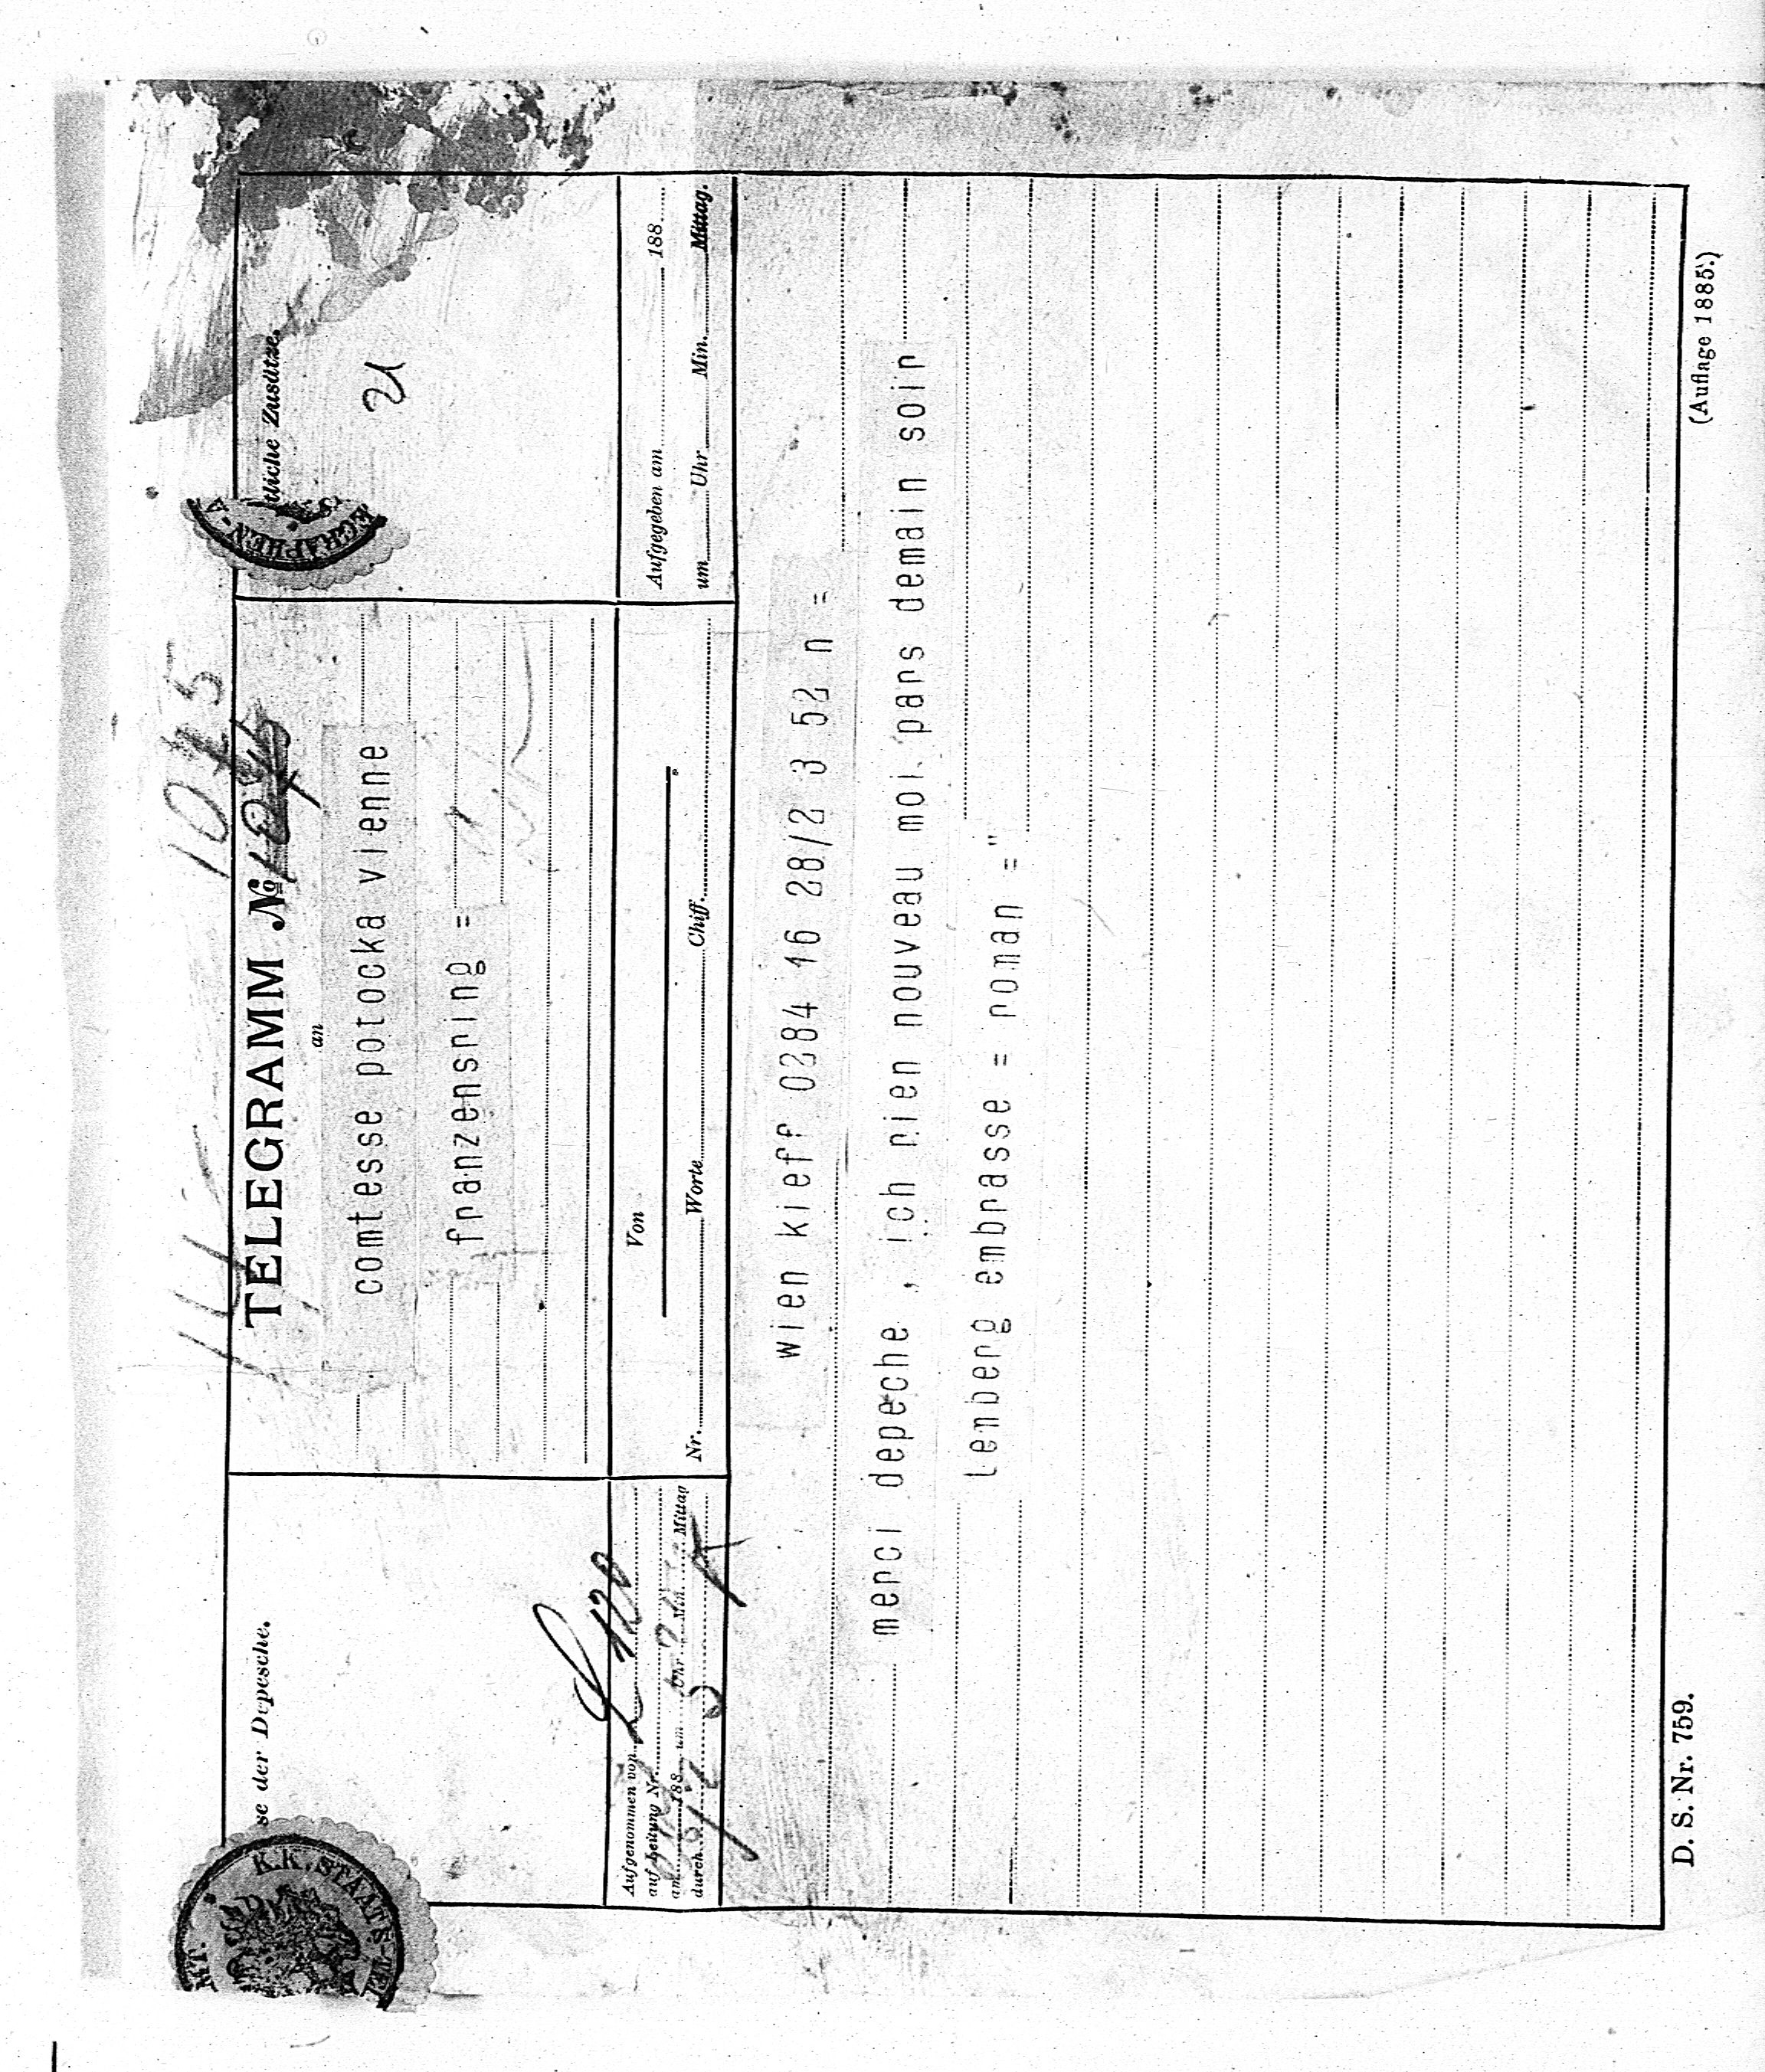 1045
TELEGRAMM №
an
comtesse potocka vienne
franzensring =
se der Depesche.
K.K. STAATS-TEL
MT.
tliche Zusätze.
EGRAPHEN-A
21
Aufgenommen von
auf Leitung Nr.
am 188 um Uhr Min. Mittag
durch
Von
Nr. Worte Chiff.
Aufgegeben am 188
um Uhr Min. Mittag.
wien kieff 0284 16 28/2 3 52 n =
merci depeche , ich rien nouveau moi pars demain soir
lemberg embrasse = roman ="
D. S. Nr. 759.
(Auflage 1885.)